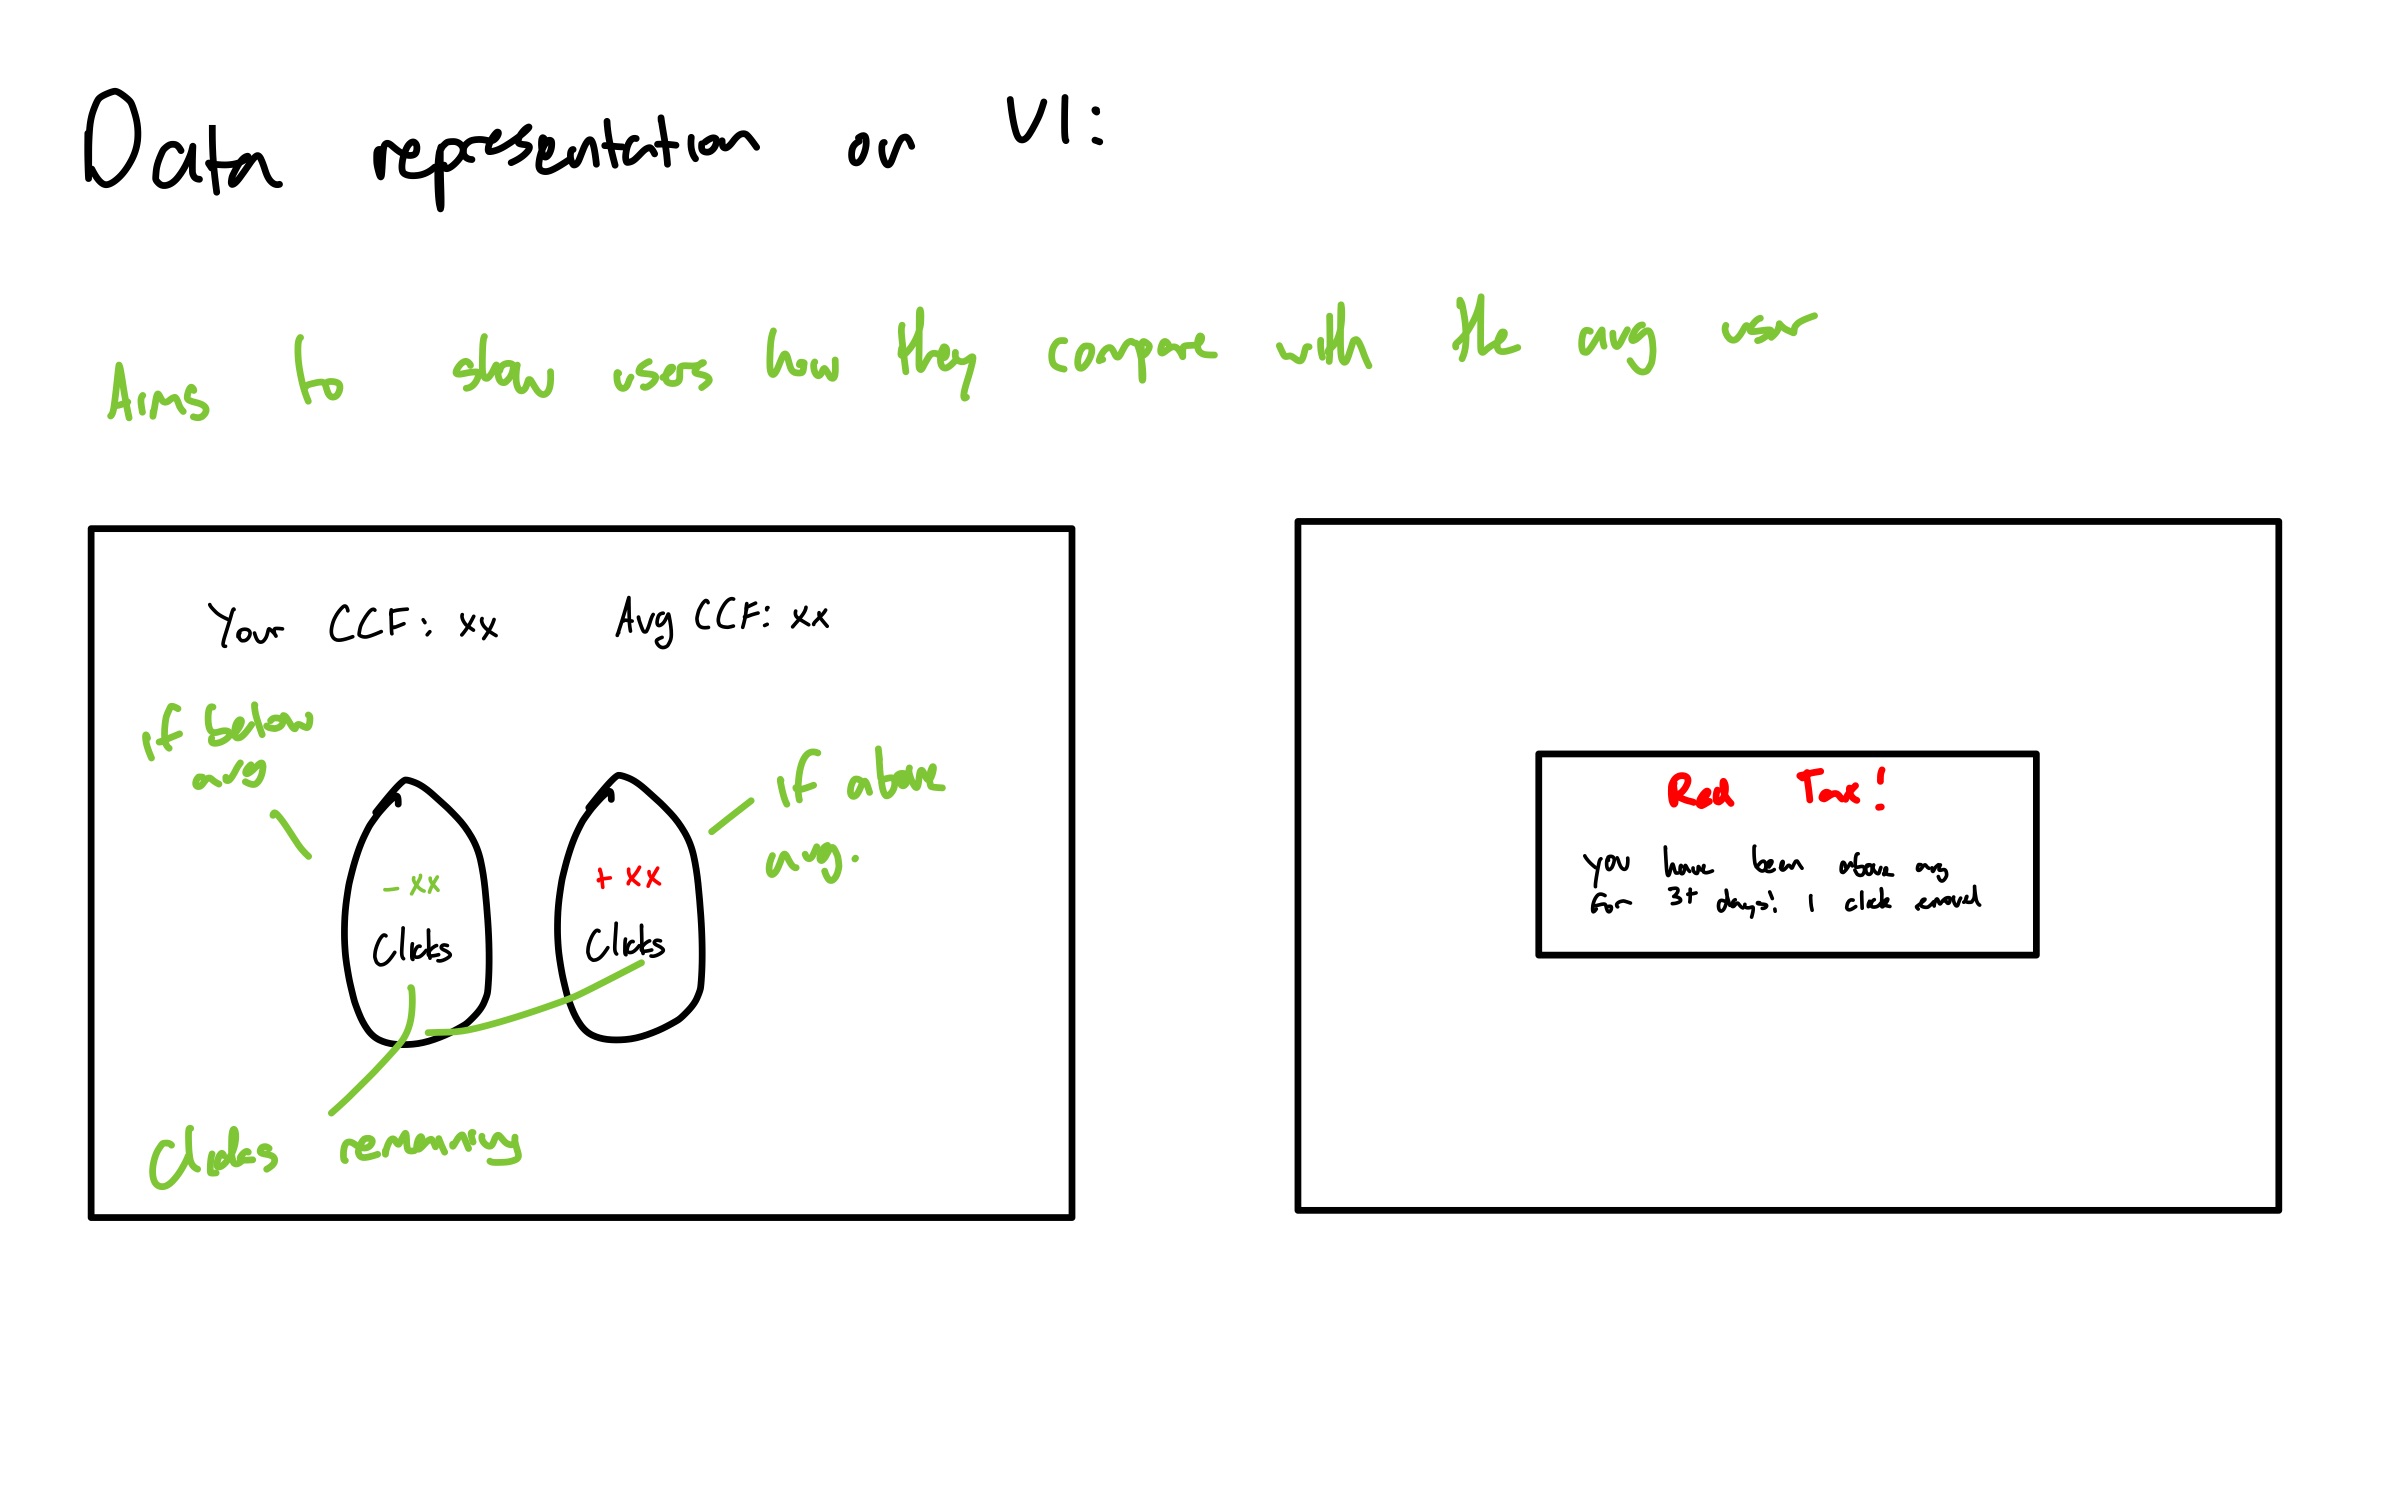 Data representation on V1:
Aims to show users how they compare with the avg user
Your CCF: xx
Avg CCF: xx
if below
avg
if above
avg.
-xx
Clicks
+xx
Clicks
Clicks remaining
Red Tax!
You have been above avg
for 3+ days: 1 click